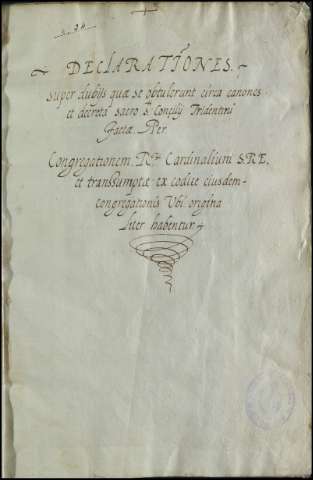 DECLARATIONES.
super dubijs quæ se obtulerunt circa canones
et decreta sacro s. Concilij Tridentini
factæ Per
Congregationem Cardinalium S.R.E.
et transsumptæ ex codice eiusdem
congregationis Ubi origina
liter habentur